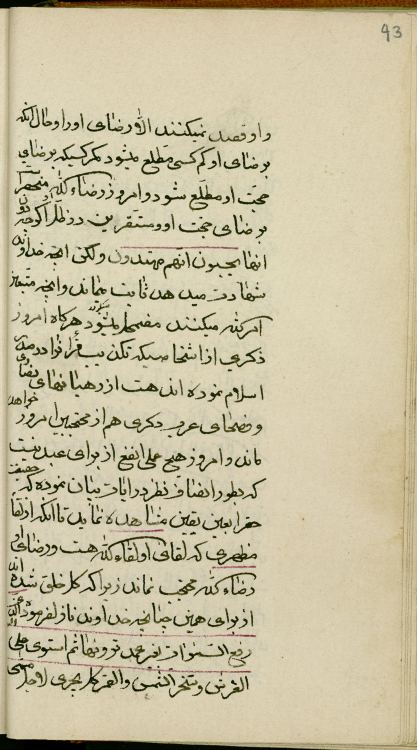 43
و او قصد نمیکنند الا و رضای او را و حال آنکه
بر رضای او کم کسی مطلع میشود مگر کسیکه بر رضای
حجت او مطلع شود و امروز رضاء الله منحصر
بر رضای حجت او و مستقرین در ظل او که خود
انها یحسبون انهم مهتدون ولکن آنچه خداوند
شهادت میدهد ثابت میماند و آنچه متبعین
میکنند مضمحل میشود هرگاه امروز
ذکری از اشخاصیکه تکذیب قرآن را در صدر
اسلام نموده اند هست از رهبانهای نصاری
و فصحای عرب ذکری هم از محتجبین امروز خواهد
ماند و امروز هیچ عملی انفع از برای عبد نیست
که بطور انصاف نظر در آیات بیان نموده که حقیقت
بعین یقین مشاهده نماید تا آنکه از لقاء
مظهری که لقای او لقاء الله هست و رضای او
رضاء الله محتجب نماند زیرا که کل خلق شده اند
از برای همین چنانچه خداوند نازل فرموده الله الذی
رفع السموات بغیر عمد ترونها ثم استوی علی
العرش و سخر الشمس والقمر کل یجری لاجل مسمی